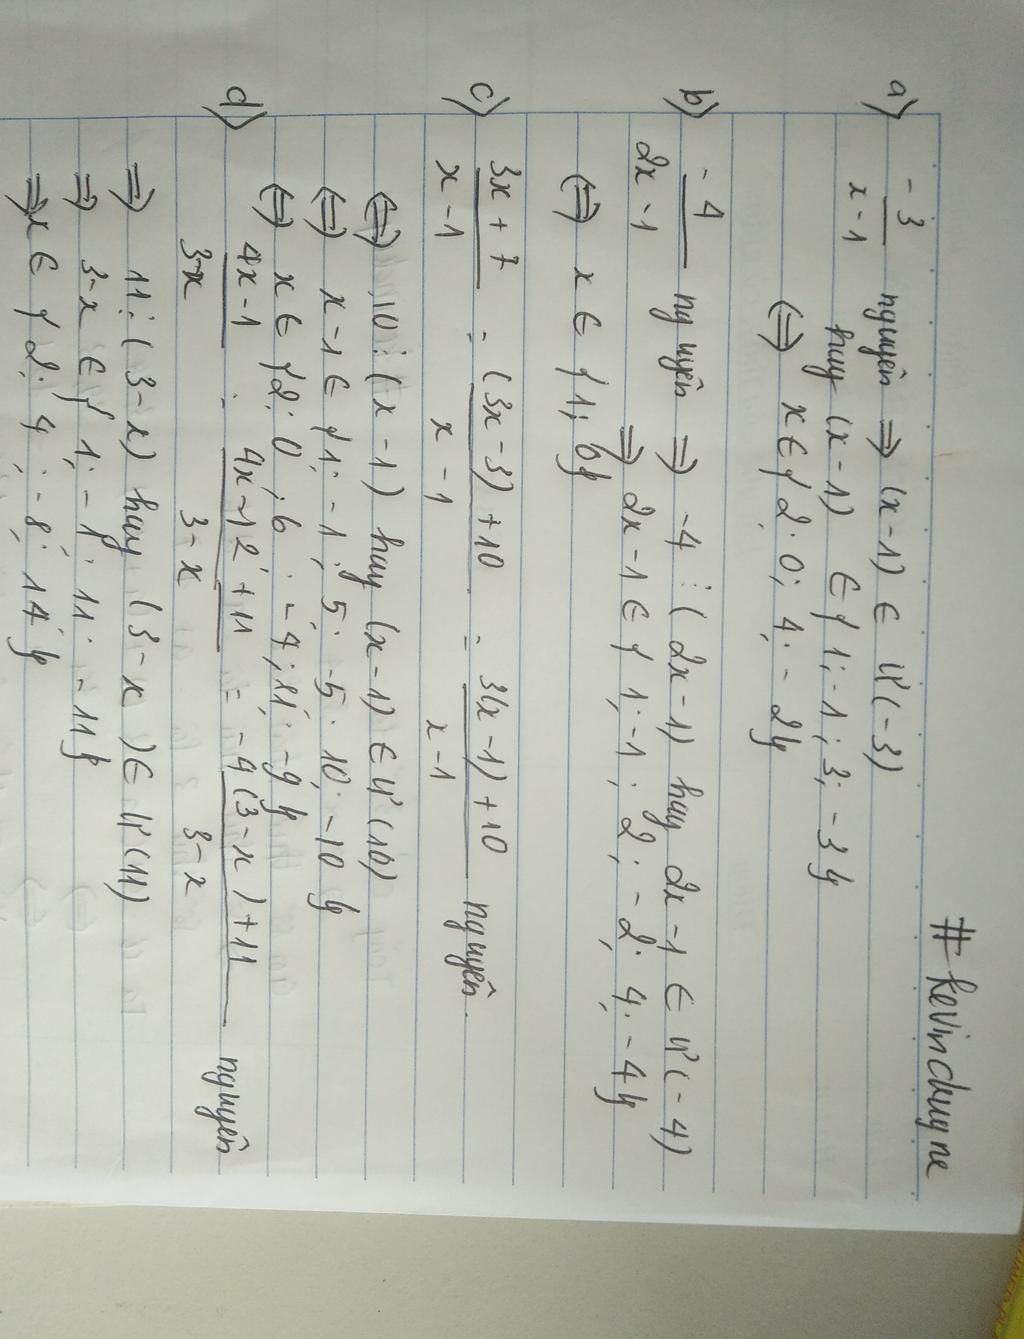 # kevinchuyne
a) -3/x-1 nguyên => (x-1) ∈ Ư(-3)
hay (x-1) ∈ {1; -1; 3; -3}
<=> x ∈ {2; 0; 4; -2}
b) -4/2x-1 nguyên => -4 ⋮ (2x-1) hay 2x-1 ∈ Ư(-4)
=> 2x-1 ∈ {1; -1; 2; -2; 4; -4}
<=> x ∈ {1; 0}
c) 3x+7/x-1 = (3x-3)+10/x-1 = 3(x-1)+10/x-1 nguyên.
<=> 10 ⋮ (x-1) hay (x-1) ∈ Ư(10)
<=> x-1 ∈ {1; -1; 5; -5; 10; -10}
<=> x ∈ {2; 0; 6; -4; 11; -9}
d) 4x-1/3-x = 4x-12+11/3-x = -4(3-x)+11/3-x nguyên
=> 11 ⋮ (3-x) hay (3-x) ∈ Ư(11)
=> 3-x ∈ {1; -1; 11; -11}
=> x ∈ {2; 4; -8; 14}